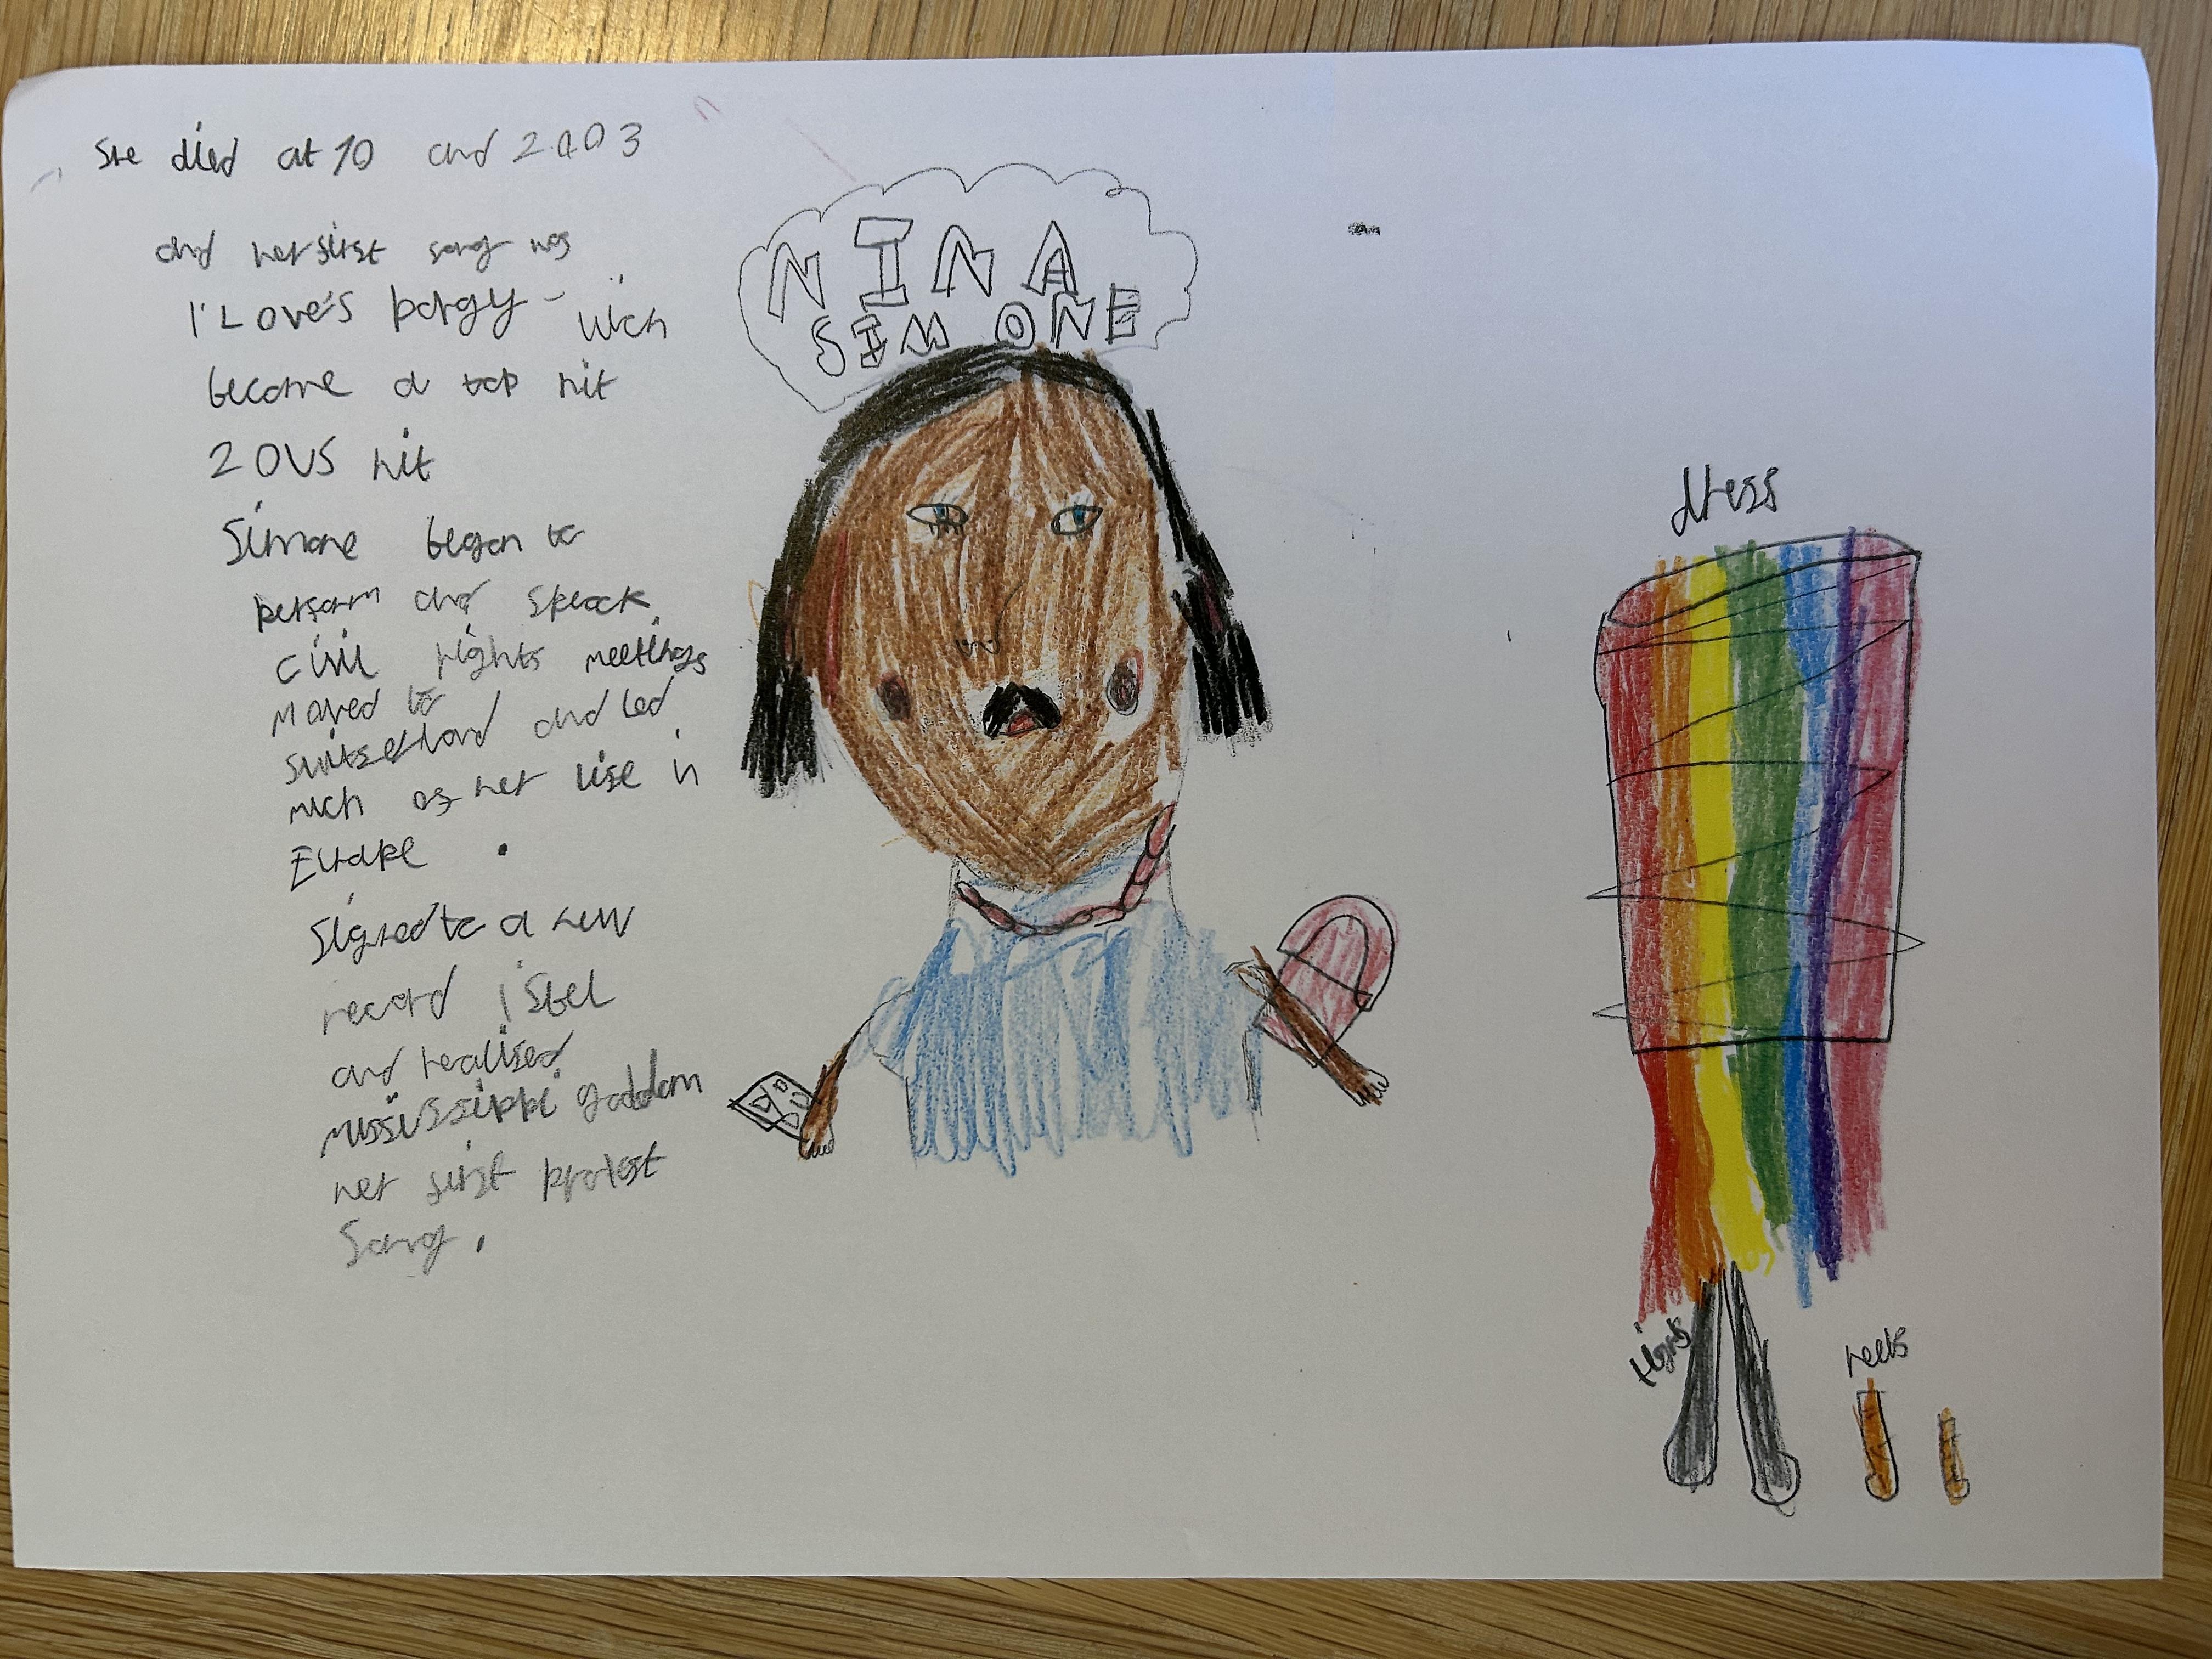 She died at 70 and 2003
and her first song was
I'Loves porgy wich
become a top hit
20 US hit
Simone began to
perform and speack
civil rights meetings
moved to
switserland and led
much of her life in
Europe .
Signed to a new
record
and realised
mississippi goddam
her first protest
Song .
NINA
SIMONE
dress
tights
heels